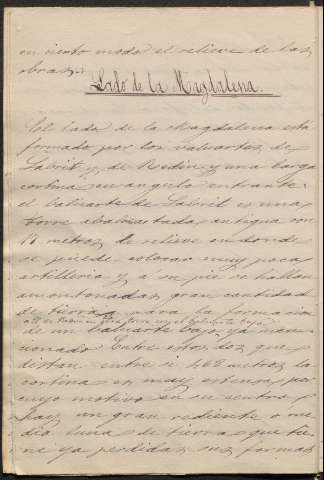 en cierto modo el relieve de las
obras.
Lado de la Magdalena.
El lado de la Magdalena está
formado por los baluartes de
Labrit y de Redin y una larga
cortina en angulo entrante:
el baluarte de Labrit es una
torre abaluartada antigua con
metros de relieve en donde
se puede colocar muy poca
artilleria y á su pie se hallan
amontonadas gran cantidad
de tierras para la formacion
de un baluarte bajo ya men-
cionado. Entre estos dos que
distan entre si 468 metros la
cortina es muy estensa por
cuyo motivo en su centro
hay un gran rediente o me-
dia luna de tierra que tie-
ne ya perdidas sus formas